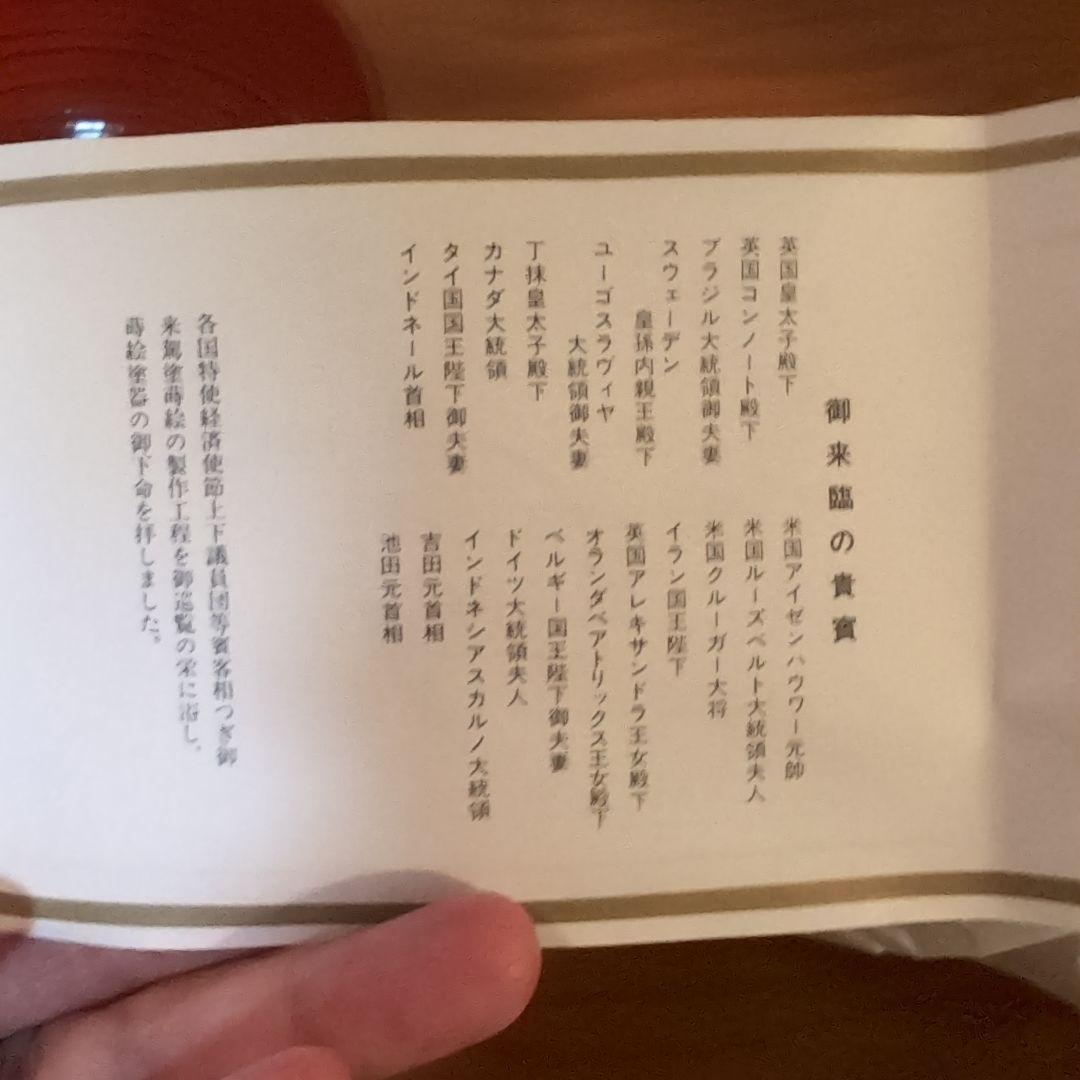 御来臨の貴賓
英国皇太子殿下
英国コンノート殿下
ブラジル大統領御夫妻
スウェーデン
皇孫内親王殿下
ユーゴスラヴィヤ
大統領御夫妻
丁抹皇太子殿下
カナダ大統領
タイ国国王陛下御夫妻
インドネール首相
米国アイゼンハウワー元帥
米国ルーズベルト大統領夫人
米国クルーガー大将
イラン国王陛下
英国アレキサンドラ王女殿下
オランダベアトリックス王女殿下
ベルギー国王陛下御夫妻
ドイツ大統領夫人
インドネシアスカルノ大統領
吉田元首相
池田元首相
各国特使経済使節上下議員団等賓客相つぎ御
来駕塗蒔絵の製作工程を御巡覧の栄に浴し、
蒔絵塗器の御下命を拝しました。